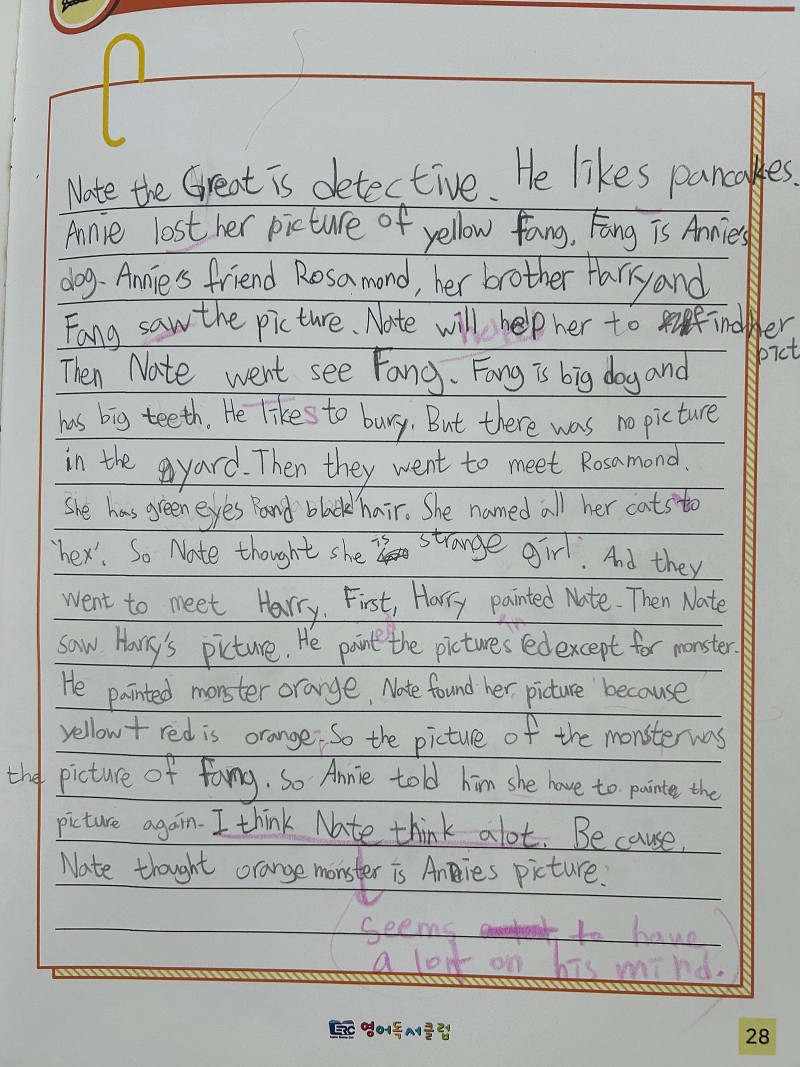 Nate the Great is detective. He likes pancakes.
Annie lost her picture of yellow fang. Fang is Annie's
dog. Annie's friend Rosamond, her brother Harry and
Fang saw the picture. Nate will help her to find her
pict
Then Nate went see Fang. Fang is big dog and
has big teeth. He likes to bury. But there was no picture
in the yard. Then they went to meet Rosamond.
She has green eyes and black hair. She named all her cats to
'hex'. So Nate thought she is strange girl. And they
went to meet Harry. First, Harry painted Nate. Then Nate
saw Harry's picture. He painted the pictures in red except for monster.
He painted monster orange. Nate found her picture because
yellow + red is orange. So the picture of the monster was
the picture of fang. So Annie told him she have to painte the
picture again. I think Nate think alot. Be cause,
Nate thought orange monster is Annies picture.
seems to have
a lot on his mind.
ERC 영어독서클럽
28